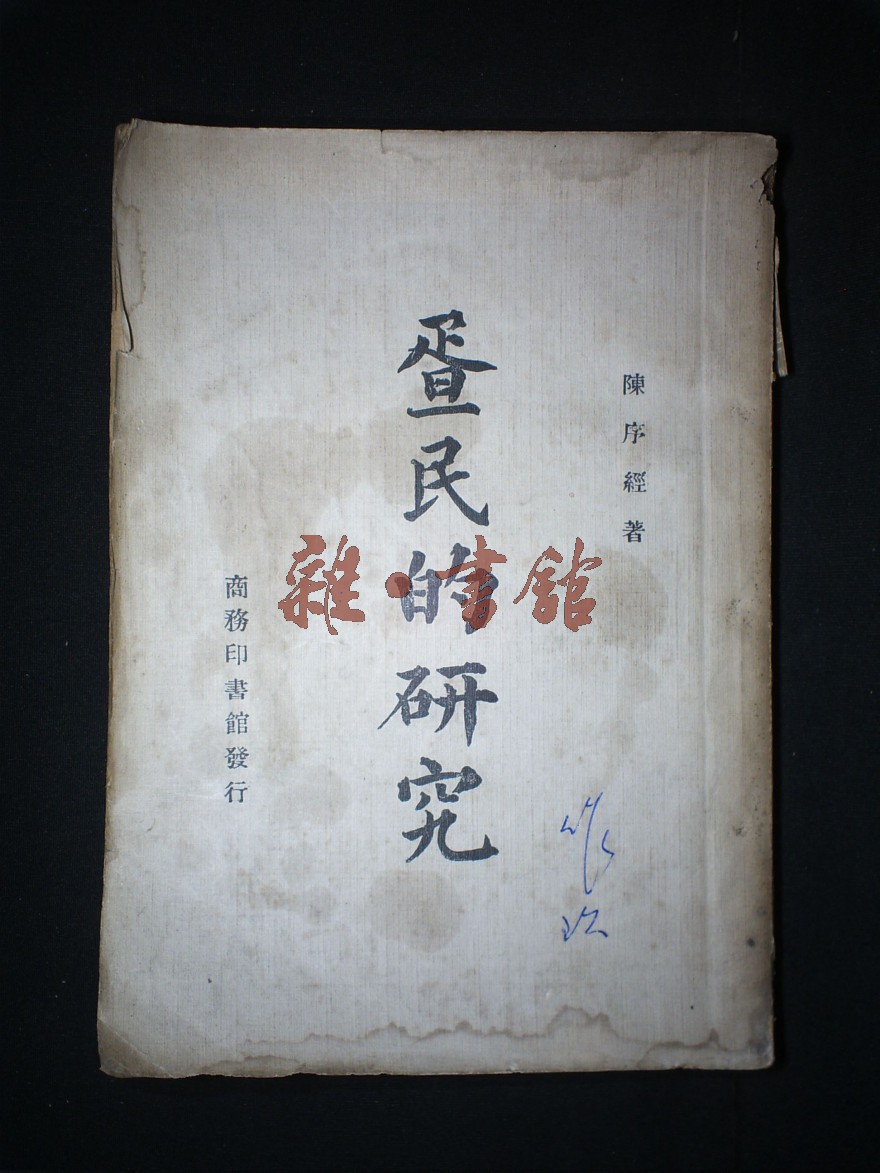 陳序經著
疍民的研究
商務印書館發行
雜·書館